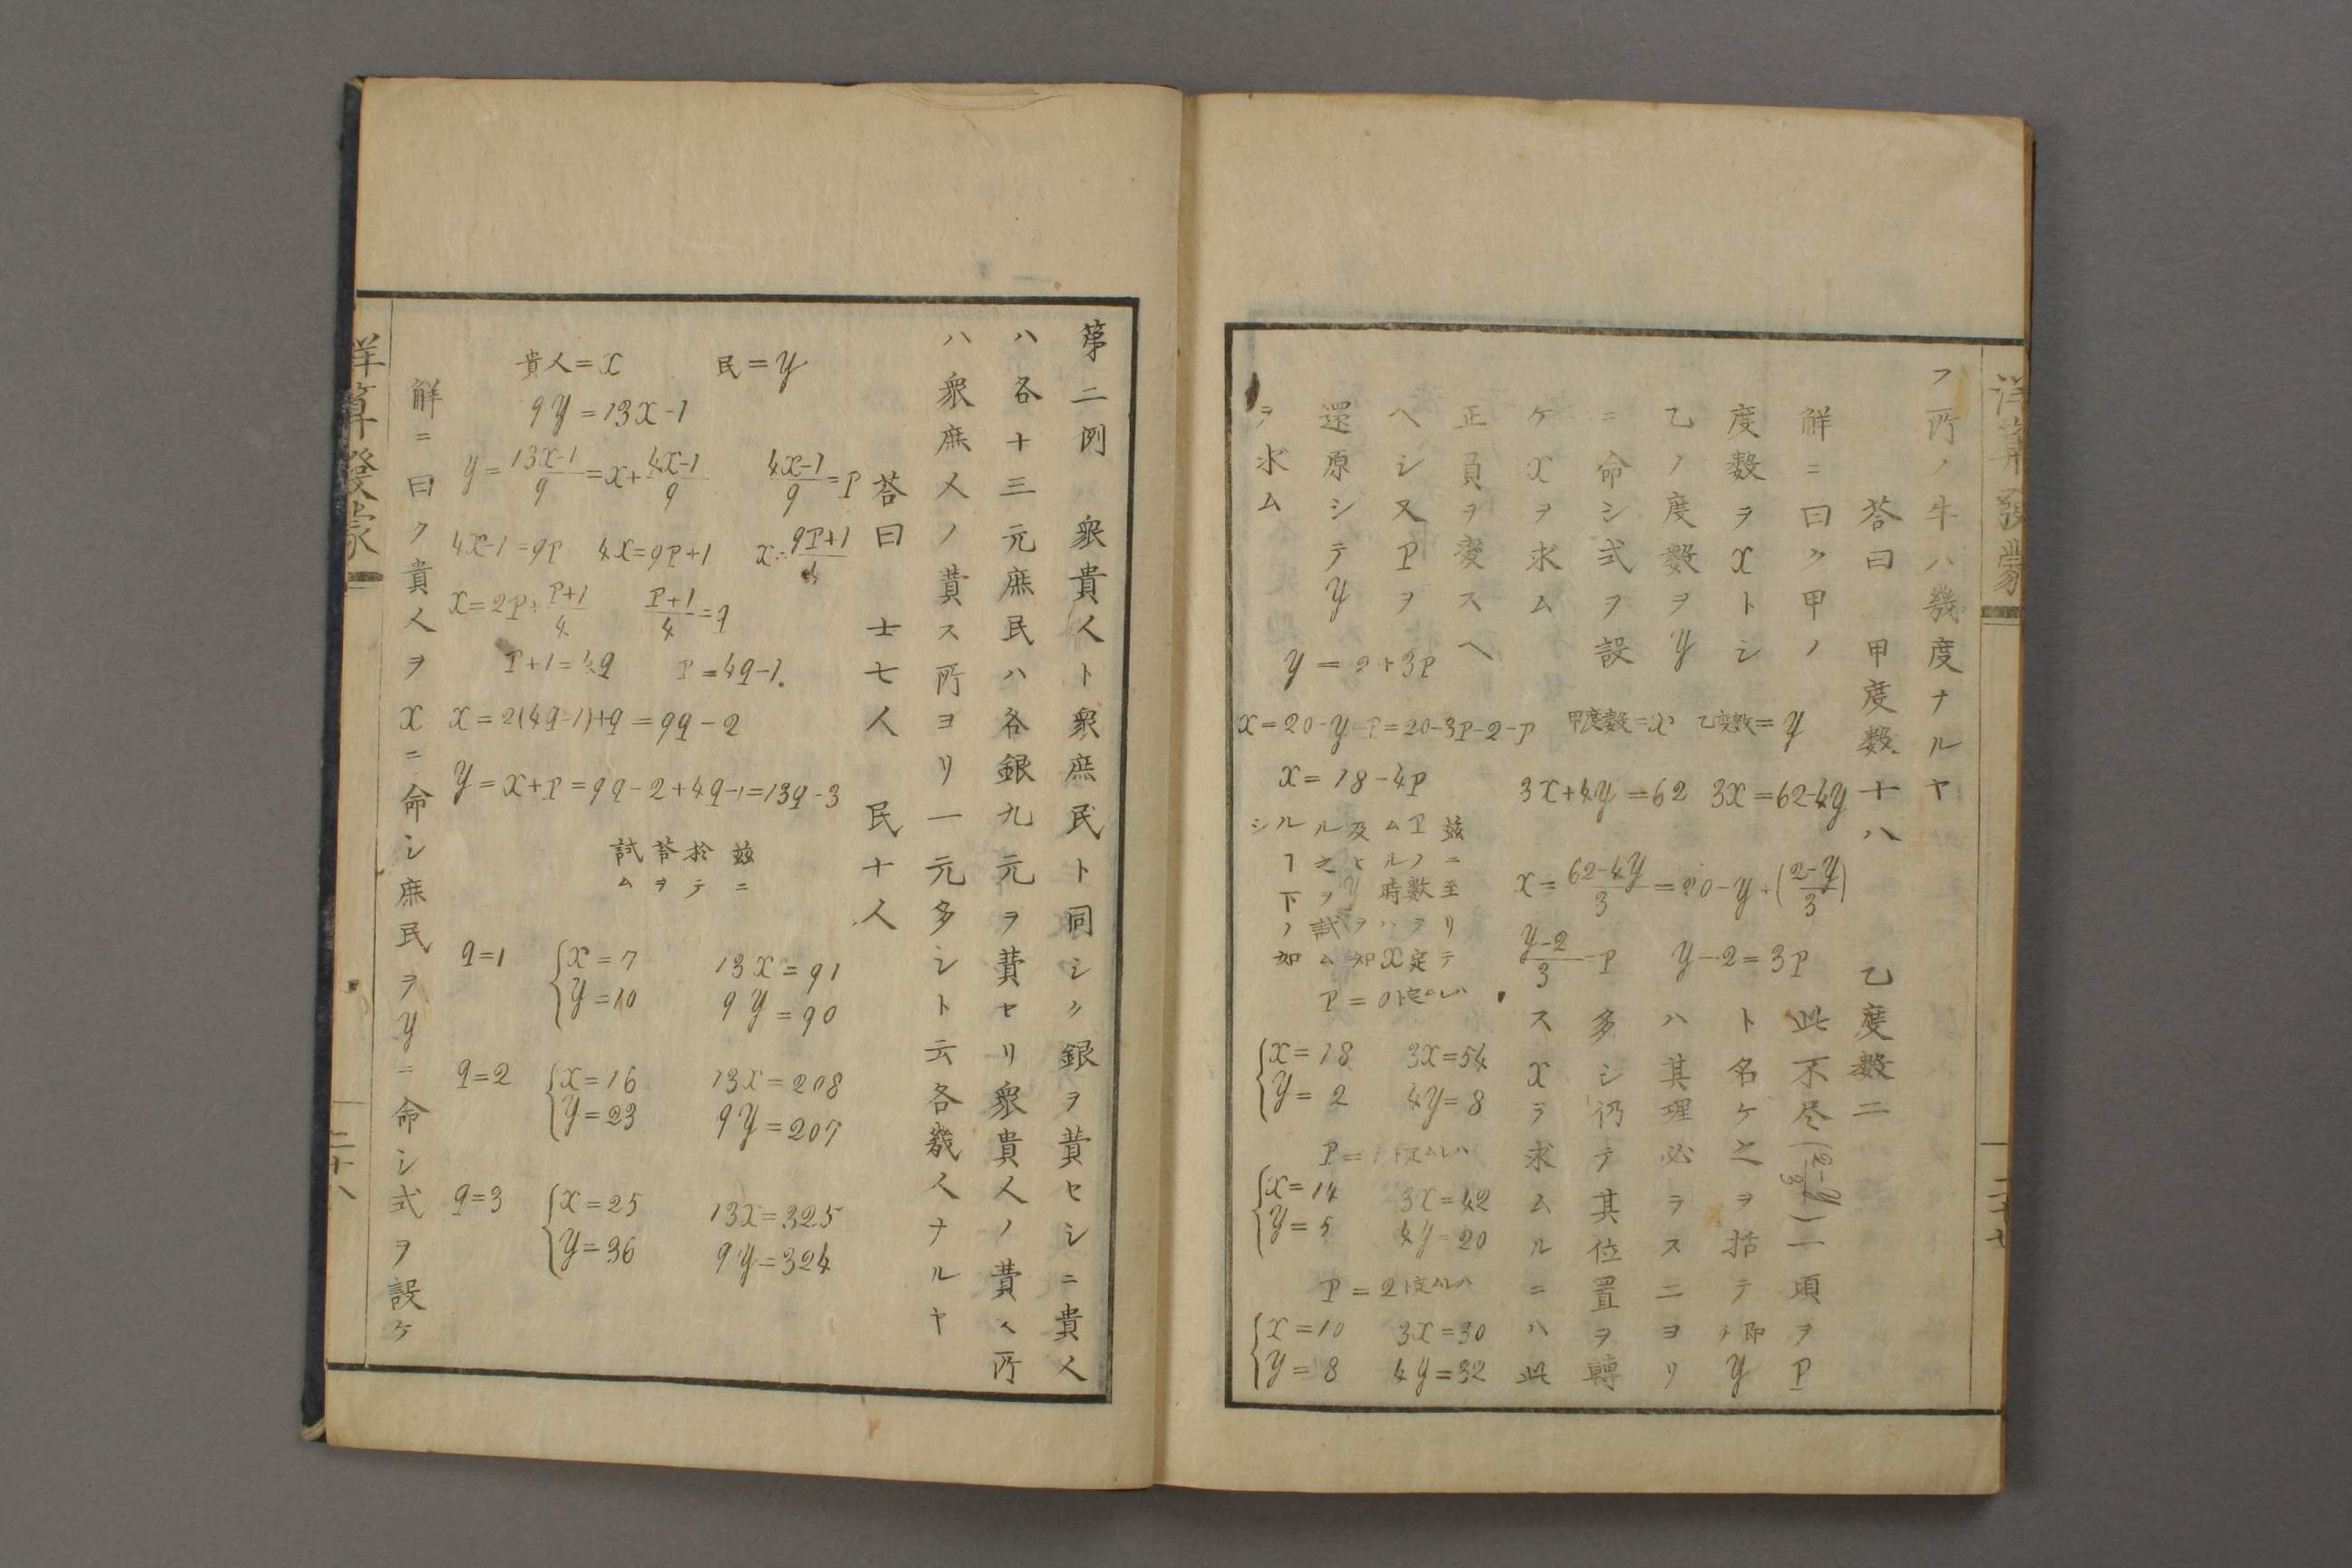 洋算發蒙
二十七
フ所ノ牛ハ幾度ナルヤ
答曰 甲度数十八 乙度数二
解ニ曰ク甲ノ
度数ヲxトシ
乙ノ度数ヲy
ニ命シ式ヲ設
ケxヲ求ム
正負ヲ変スヘ
ヘシ又Pヲ
還原シテy
ヲ求ム
甲度数=x 乙度数=y
3x+4y=62 3x=62-4y
x=62-4y/3=20-y+(2-y/3)
y-2/3=P y-2=3P
此不尽(2-y/3)一項ヲP
ト名ケ之ヲ括テ即チy
ハ其理必ラスニヨリ
多シ仍テ其位置ヲ轉
スxヲ求ムルニハ此
y=2+3P
x=20-y-P=20-3P-2-P
x=18-4P
茲ニ至リテ
Pノ數ヲ定
ムル時ハx
及ヒyヲ知
ル之ヲ試ム
ルヿ下ノ如
シ
P=0ト定ムレハ
x=18 3x=54
y=2 4y=8
P=1ト定ムレハ
x=14 3x=42
y=5 4y=20
P=2ト定ムレハ
x=10 3x=30
y=8 4y=32
第二例 衆貴人ト衆庶民ト同シク銀ヲ費セシニ貴人
ハ各十三元庶民ハ各銀九元ヲ費セリ衆貴人ノ費ス所
ハ衆庶人ノ費ス所ヨリ一元多シト云各幾人ナルヤ
答曰 士七人 民十人
貴人=x 民=y
9y=13x-1
y=13x-1/9=x+4x-1/9 4x-1/9=P
4x-1=9P 4x=9P+1 x=9P+1/4
x=2P+P+1/4 P+1/4=q
P+1=4q P=4q-1
x=2(4q-1)+q=9q-2
y=x+P=9q-2+4q-1=13q-3
茲ニ
於テ
答ヲ
試ム
q=1 x=7 13x=91
y=10 9y=90
q=2 x=16 13x=208
y=23 9y=207
q=3 x=25 13x=325
y=36 9y=324
解ニ曰ク貴人ヲxニ命シ庶民ヲyニ命シ式ヲ設ケ
洋算發蒙
二十八